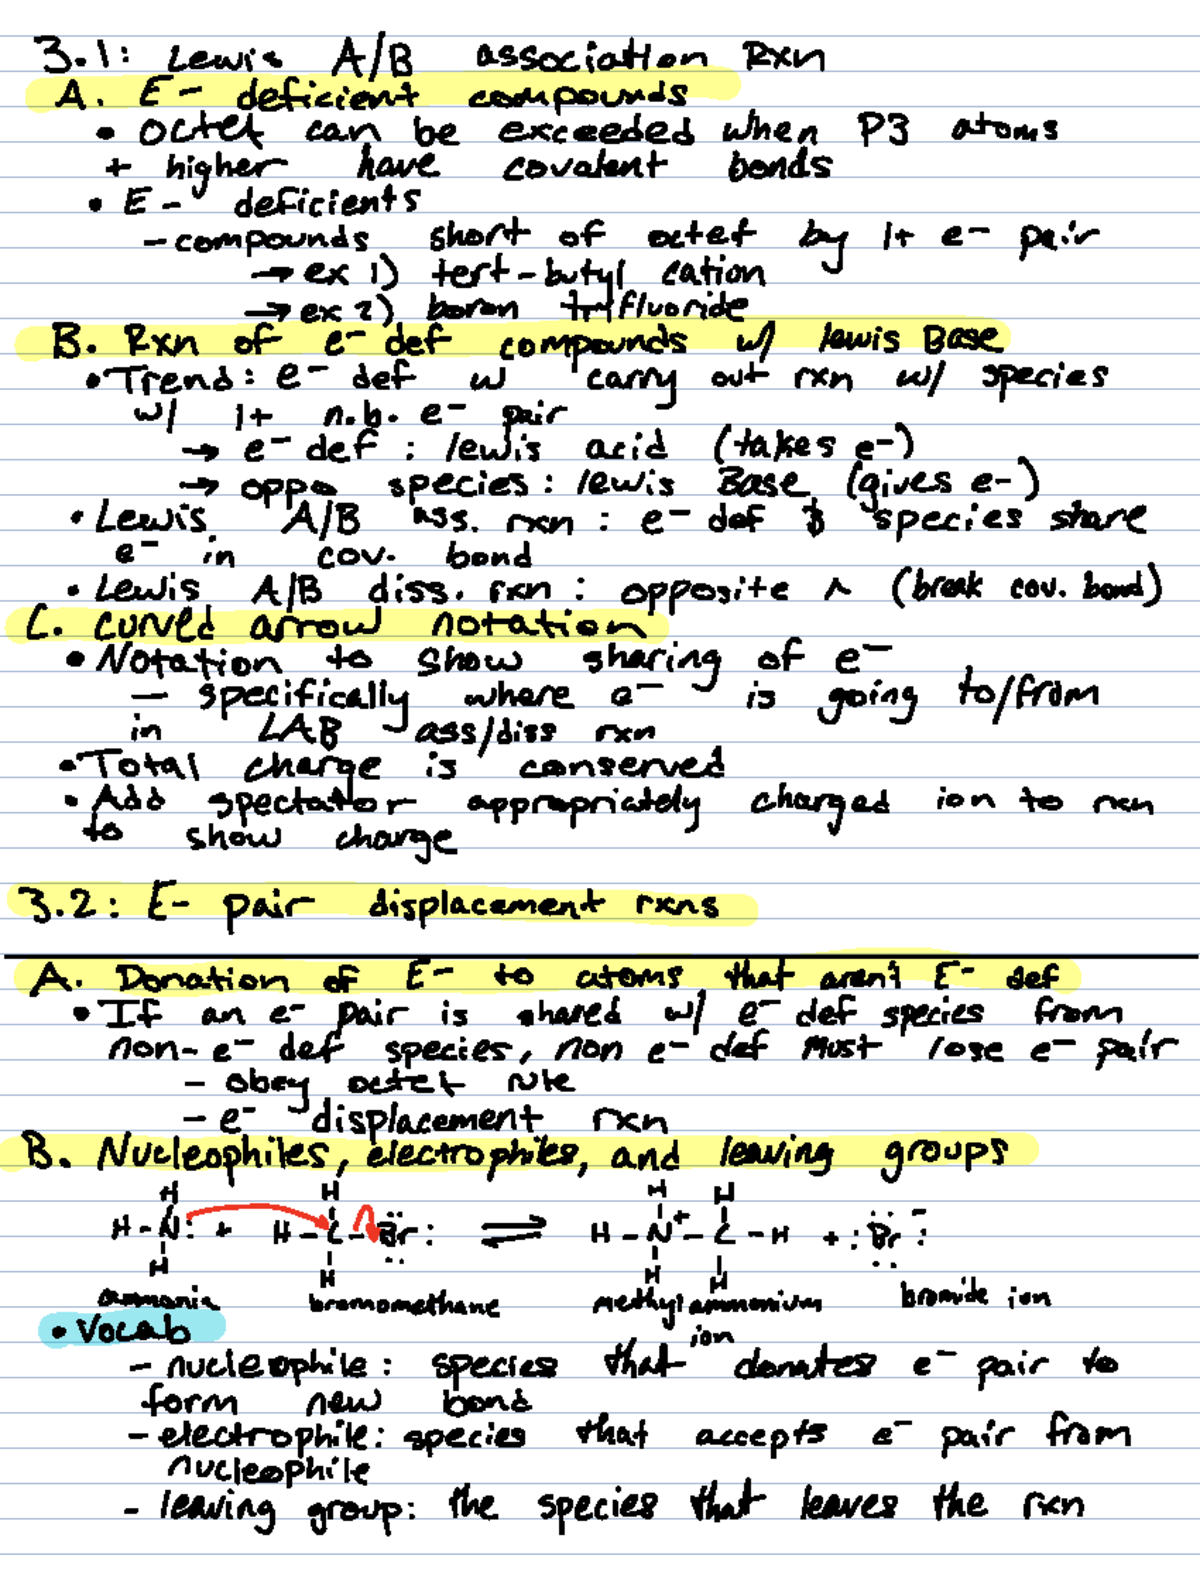 3.1: Lewis A/B association Rxn
A. E- deficient compounds
• Octet can be exceeded when P3 atoms
+ higher have covalent bonds
• E- deficients
- compounds short of octet by 1+ e- pair
→ ex 1) tert-butyl cation
→ ex 2) boron trifluoride
B. Rxn of e- def compounds w/ lewis Base
• Trend: e- def w carry out rxn w/ species
w/ 1+ n.b. e- pair
→ e- def : lewis acid (takes e-)
→ oppo species : lewis Base (gives e-)
• Lewis A/B ass. rxn : e- def & species share
e- in cov. bond
• Lewis A/B diss. rxn : opposite ^ (break cov. bond)
C. curved arrow notation
• Notation to show sharing of e-
- specifically where e- is going to/from
in LAB ass/diss rxn
• Total charge is conserved
• Add spectator appropriately charged ion to rxn
to show charge
3.2: E- pair displacement rxns
A. Donation of E- to atoms that aren't E- def
• If an e- pair is shared w/ e- def species from
non-e- def species, non e- def must lose e- pair
- obey octet rule
- e- displacement rxn
B. Nucleophiles, electrophiles, and leaving groups
H H H H
H-N: + H-C-Br: ⇌ H-N+-C-H + :Br:-
H H H H
ammonia bromomethane methylammonium bromide ion
ion
• Vocab
- nucleophile: species that donates e- pair to
form new bond
- electrophile: species that accepts e- pair from
nucleophile
- leaving group: the species that leaves the rxn